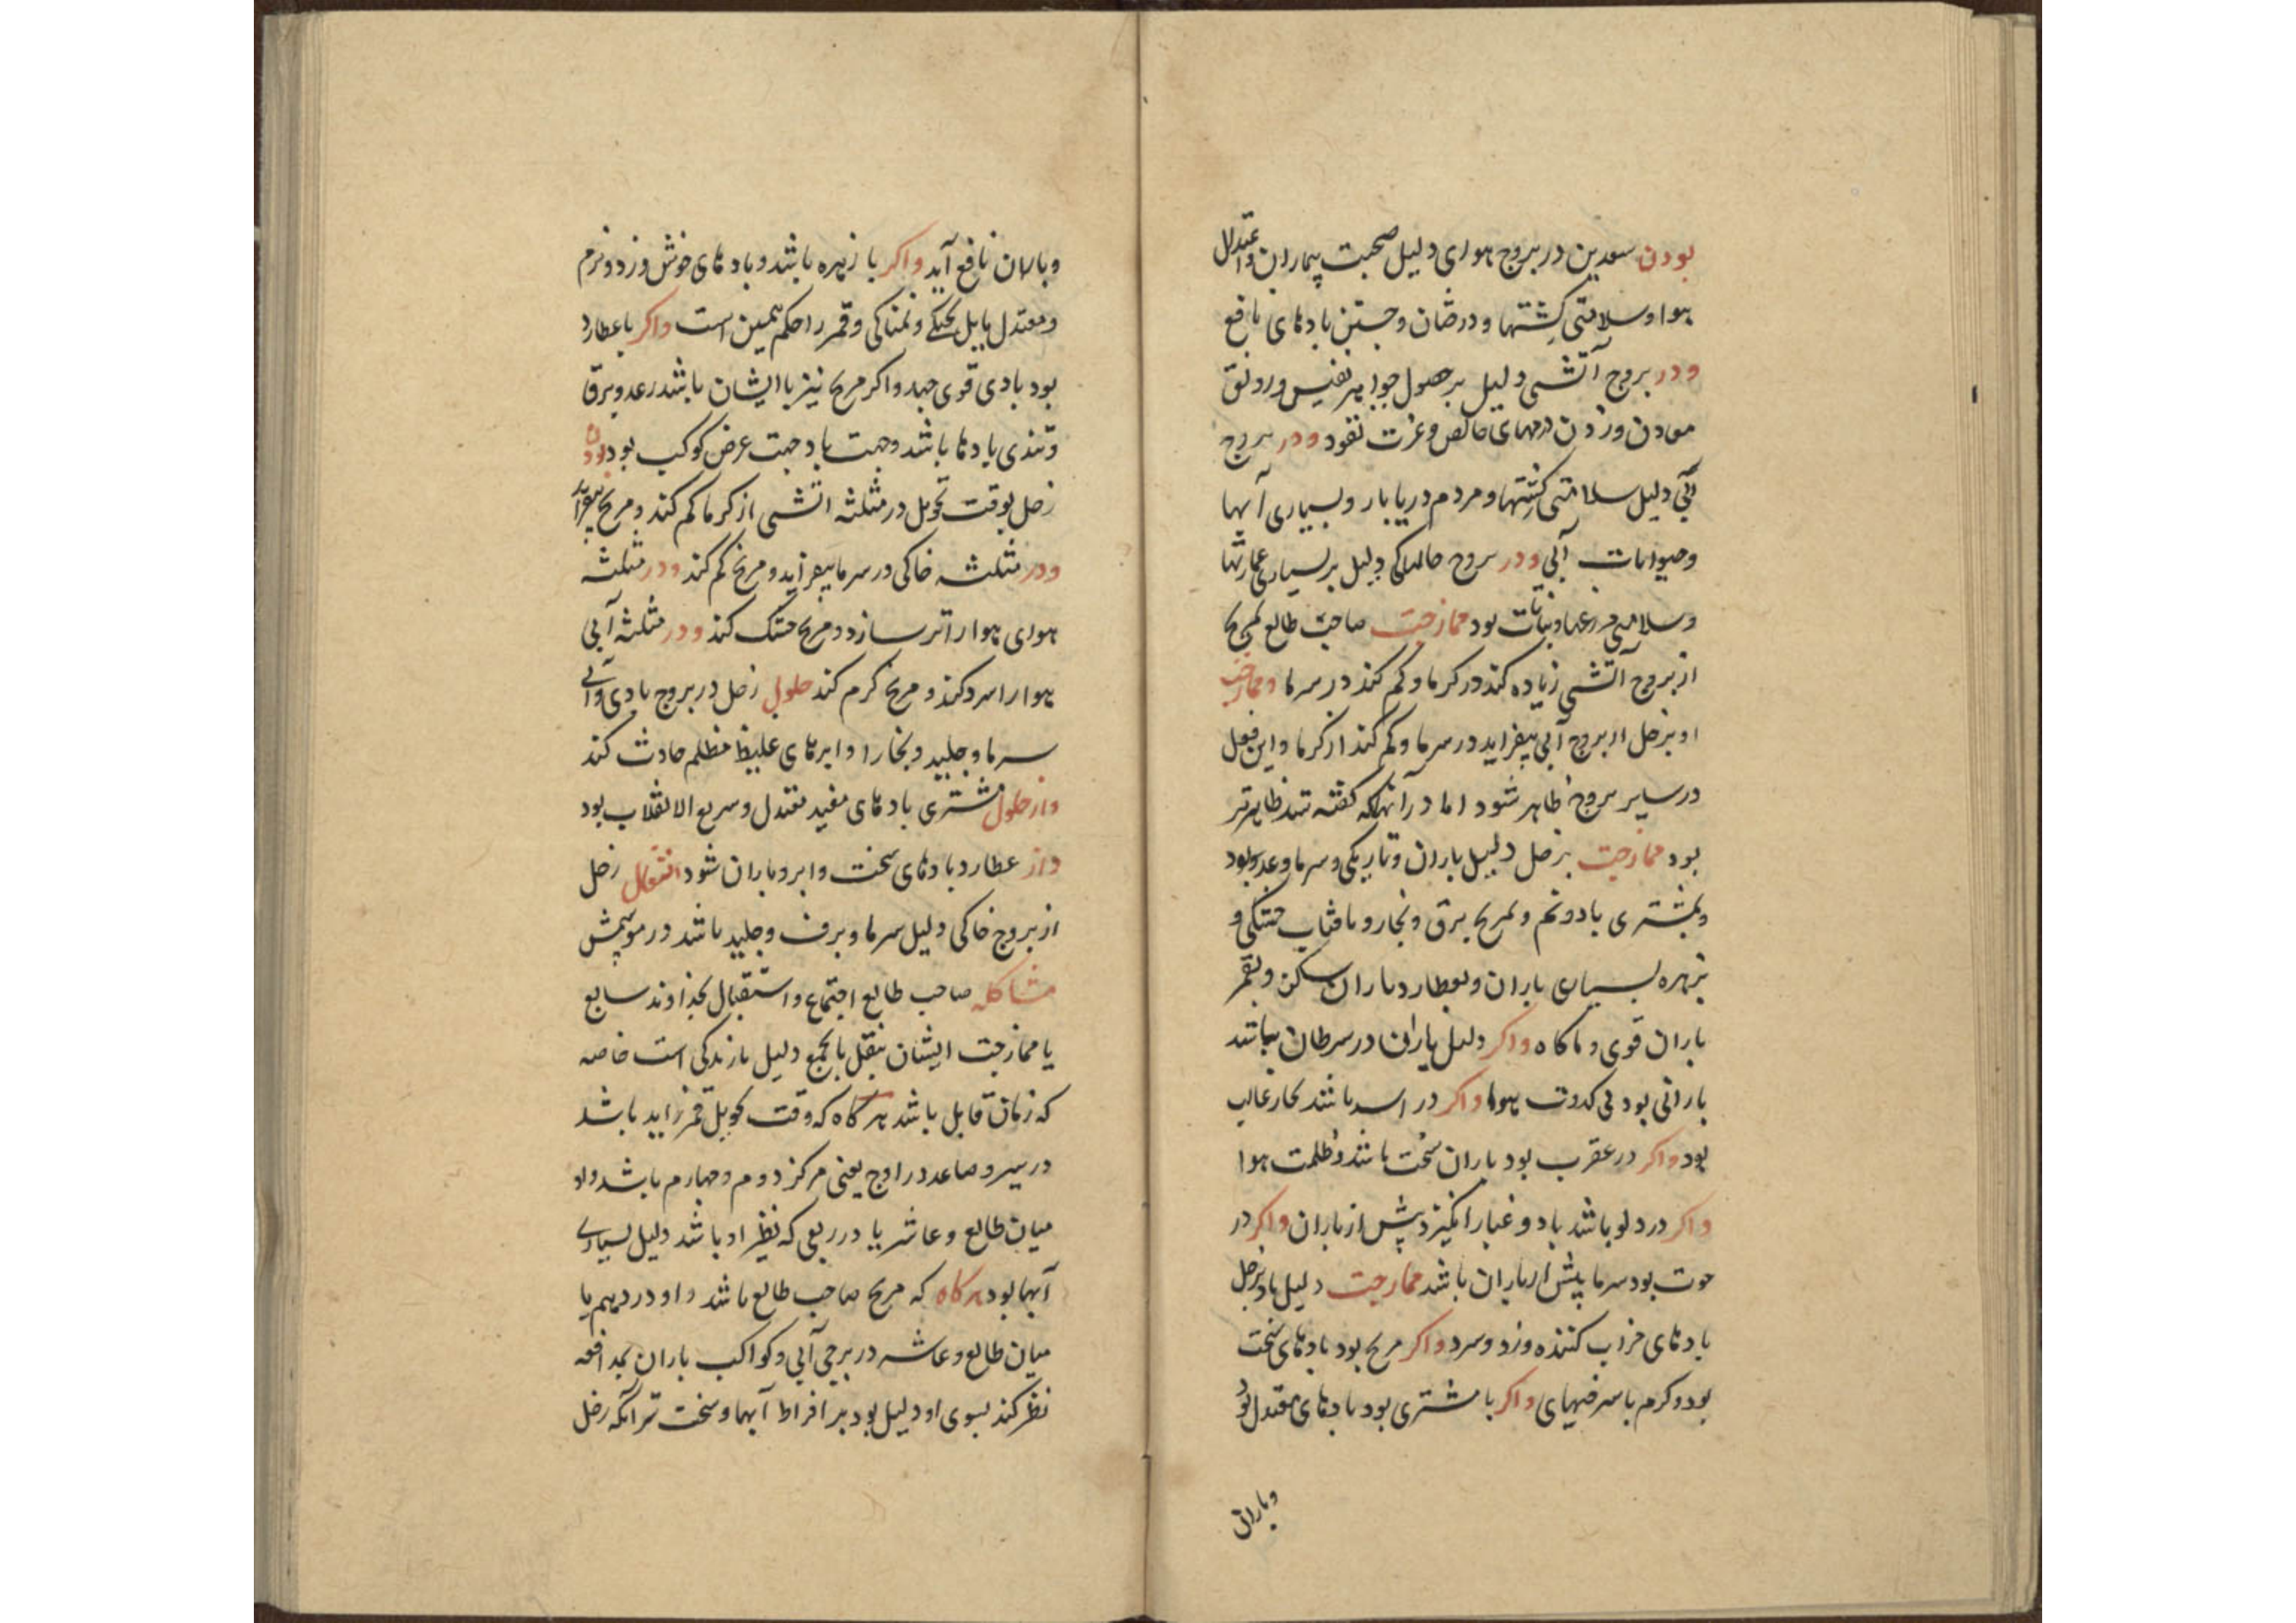 بودن سعدین در بروج هوای دلیل صحبت بیماران و اعتدال
هوا و سلامتی کشتهها و درختان و جستن بادهای نافع
ودر بروج آتشی دلیل بر حصول جواهر نفیس و رونق
معادن وزدن درمهای خالص و عزت نقود ودر بروج
آبی دلیل سلامتی کشتیها و مردم دریابار و بسیاری آبها
وحیوانات آبی ودر بروج خاکی دلیل بر بسیاری عمارتها
وسلامتی زرعها و نباتات بود ممازجت صاحب طالع بمریخ
از بروج آتشی زیاده کند در گرما و کم کند در سرما وممازجت
او بزحل از بروج آبی بیفزاید در سرما و کم کند از گرما و این فعل
در سایر بروج ظاهر شود اما در آنها که گفته شد ظاهرتر
بود ممازجت بزحل دلیل باران و تاریکی و سرما و
وبمشتری باد و نم و بمریخ برق و بخار و بافتاب خشکی و
بزهره بسیاری باران و بعطارد باران ساکن و بقمر
باران قوی و ناگاه واگر دلیل باران در سرطان باشد
بارانی بود بی کدورت هوا واگر در اسد باشد بخار غالب
بود واگر در عقرب بود باران سخت باشد و ظلمت هوا
واگر در دلو باشد باد و غبار انگیزد پیش از باران واگر در
حوت بود سرما پیش از باران باشد ممازجت دلیل باد بزحل
بادهای خراب کننده وزد و سرد واگر مریخ بود بادهای سخت
بود و گرم با سرخیهای واگر با مشتری بود بادهای معتدل بود
وباران
وباران نافع آید واگر با زهره باشد و بادهای خوش وزد و نرم
ومعتدل مایل بخنکی و نمناکی و قمر را حکم همین است واگر با عطارد
بود بادی قوی جهد واگر مریخ نیز با ایشان باشد رعد و برق
وتندی بادها باشد وجهت باد جهت عرض کوکب بود بودن
زحل بوقت تحویل در مثلثه اتشی از گرما کم کند و مریخ بیفزاید
ودر مثلثه خاکی در سرما بیفزاید و مریخ کم کند ودر مثلثه
هوای هوا را تر سازد و مریخ خشک کند ودر مثلثه آبی
هوا را سرد کند و مریخ گرم کند حلول زحل در بروج بادی و آبی
سرما و جلید و بخار را و ابرهای غلیظ مظلم حادث کند
واز حلول مشتری بادهای مفید معتدل و سریع الانقلاب بود
واز عطارد بادهای سخت و ابر و باران شود انتقال زحل
از بروج خاکی دلیل سرما و برف و جلید باشد در موسمش
مشاکله صاحب طالع اجتماع و استقبال بخداوند سابع
یا ممازجت ایشان بنقل یا بجمع دلیل بارندگی است خاصه
که زمان قابل باشد هرگاه که وقت تحویل قمر زاید باشد
در سیر و صاعد در اوج یعنی مرکز دوم و چهارم باشد واو
میان طالع و عاشر یا در ربعی که نظیر او باشد دلیل بسیاری
آبها بود هرگاه که مریخ صاحب طالع باشد و او در دهم یا
میان طالع و عاشر در برجی آبی و کواکب باران بمدافعه
نظر کند بسوی او دلیل بود بر افراط آبها و سخت تر آنکه زحل